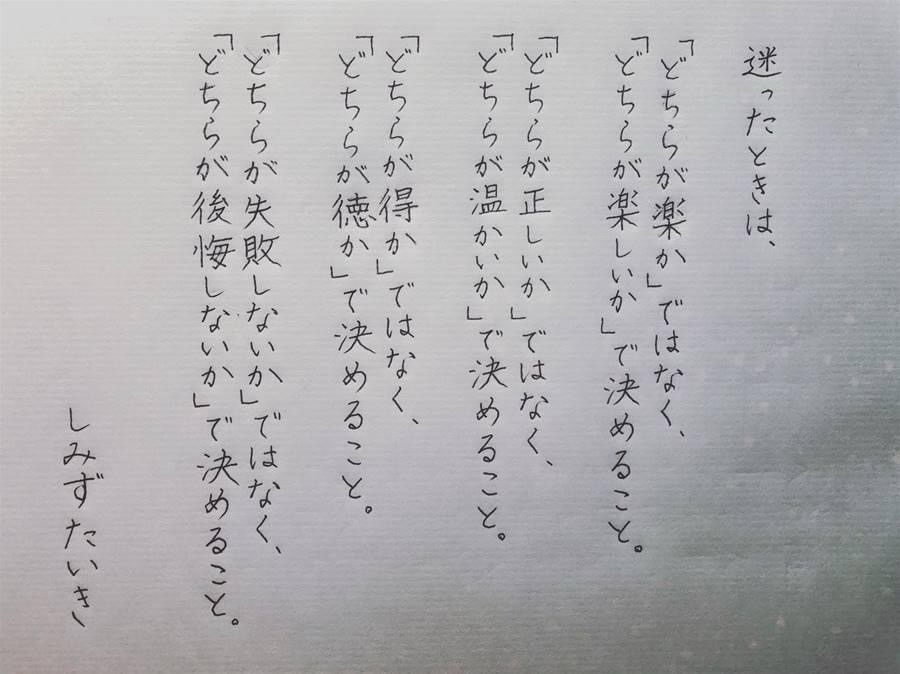 迷ったときは、
「どちらが楽か」ではなく、
「どちらが楽しいか」で決めること。
「どちらが正しいか」ではなく、
「どちらが温かいか」で決めること。
「どちらが得か」ではなく、
「どちらが徳か」で決めること。
「どちらが失敗しないか」ではなく、
「どちらが後悔しないか」で決めること。
しみずたいき